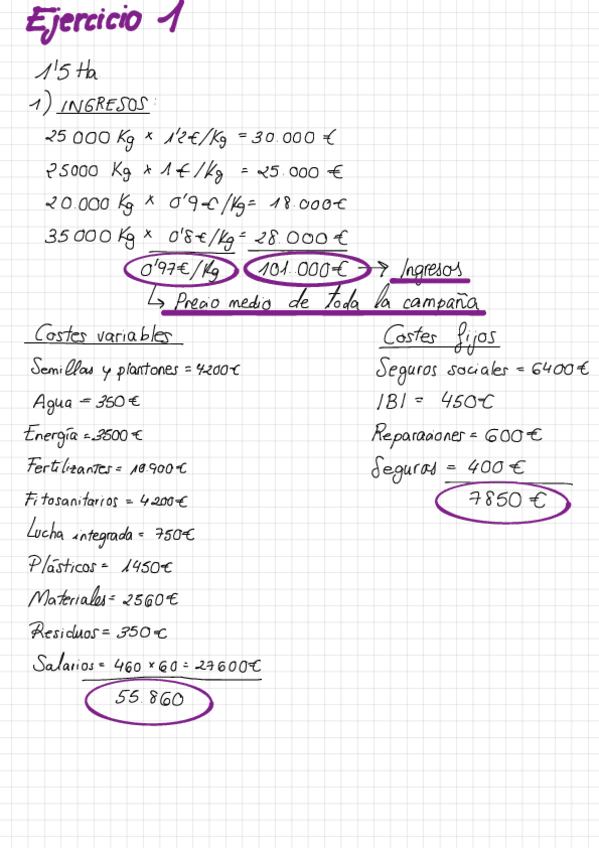 Ejercicio 1
1'5 Ha
1) INGRESOS:
25 000 Kg × 1'2€/Kg = 30.000 €
25000 Kg × 1€/Kg = 25.000 €
20.000 Kg × 0'9€/Kg= 18.000€
35 000 Kg × 0'8€/Kg= 28.000 €
0'97€/Kg 101.000€ → Ingresos
↳ Precio medio de toda la campaña
Costes variables
Semillas y plantones = 4200€
Agua = 350€
Energía = 3500€
Fertilizantes = 10.900€
Fitosanitarios = 4.200€
Lucha integrada = 750€
Plásticos = 1450€
Materiales = 2560€
Residuos = 350€
Salarios = 460 × 60 = 27600€
55.860
Costes fijos
Seguros sociales = 6400€
IBI = 450€
Reparaciones = 600€
Seguros = 400 €
7850 €